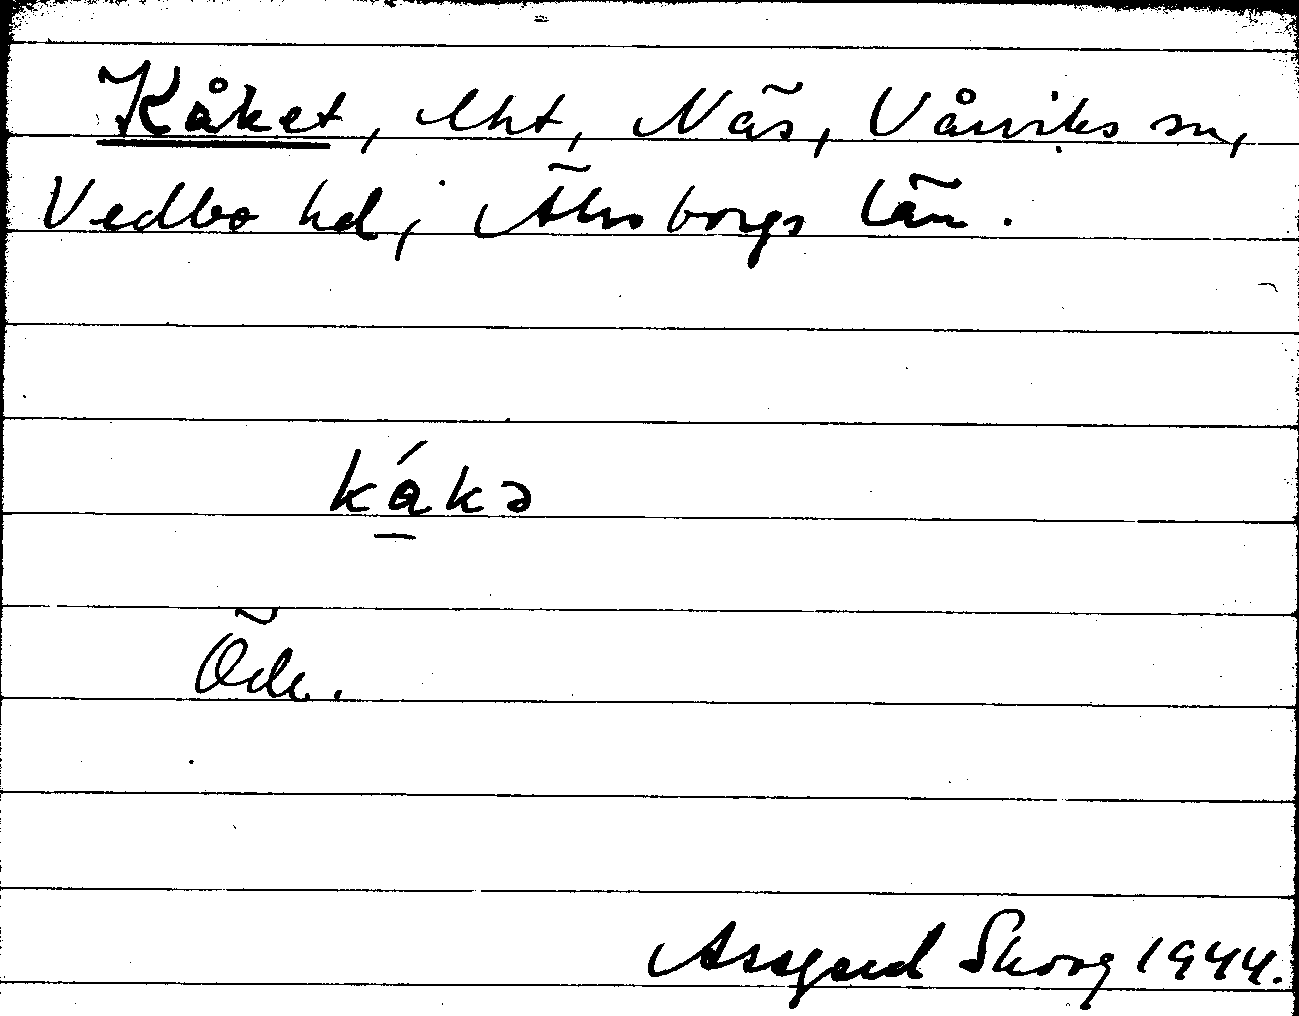 Kåket, lht, Näs, Vårviks sn,
Vedbo hd, Älvsborgs län.
kákə
Öde.
Assgerd Skorg 1944.